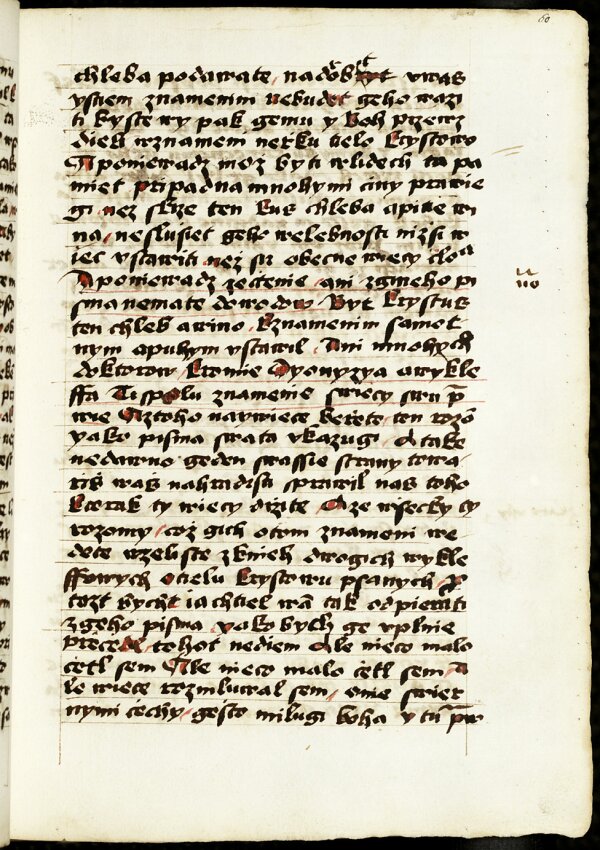 60
chleba podawate, nadobkyt vwas
ystiem znamenim nebudet geho wazi
ti byste wy pak gemu y Boh przewz
dieli wznamem nerku tielo krystowo
A poniewadz moz byti wlidech ta pa
miet pripadna mnohymi ciny prawie
gi nez skrze ten kus chleba apitie wi
na, neslusiet geho welebnosti nizssi w
iec vstawiti nez su obecne wiecy clo
A poniewadz zectenie, ani zgineho pi
sma nemate dowodow Byt krystus
ten chleb awino, kznamenim samot
nym apuhym vstawil, Ani mnohych
doktorow, kromie Dyonyzya awykle
ffa Ti spolu znamenie swiecy swu p
wie Aztoho naywiece berete, ten rozo
yako pisma swata vkazugi, A take
nedawno geden swassie strany towa
ris was nahradisti sprawil nas toho
kterak ty wiecy drzite, A ze wsecky ty
rozomy, coz gich otom znameni we
dete wzeli ste zknieh drogich wykle
ffowych otielu krystowu psanych,
tozt bycht ia chtiel wam tak odpierati
zgeho pisma, yako bych ge vplnie
precetl, tohot nediem Ale nieco malo
cetl sem Ale nieco malo cetl sem, A
le wiece rozmluwal sem, omie swier
nymi cechy, gesto milugi boha, y tu pra